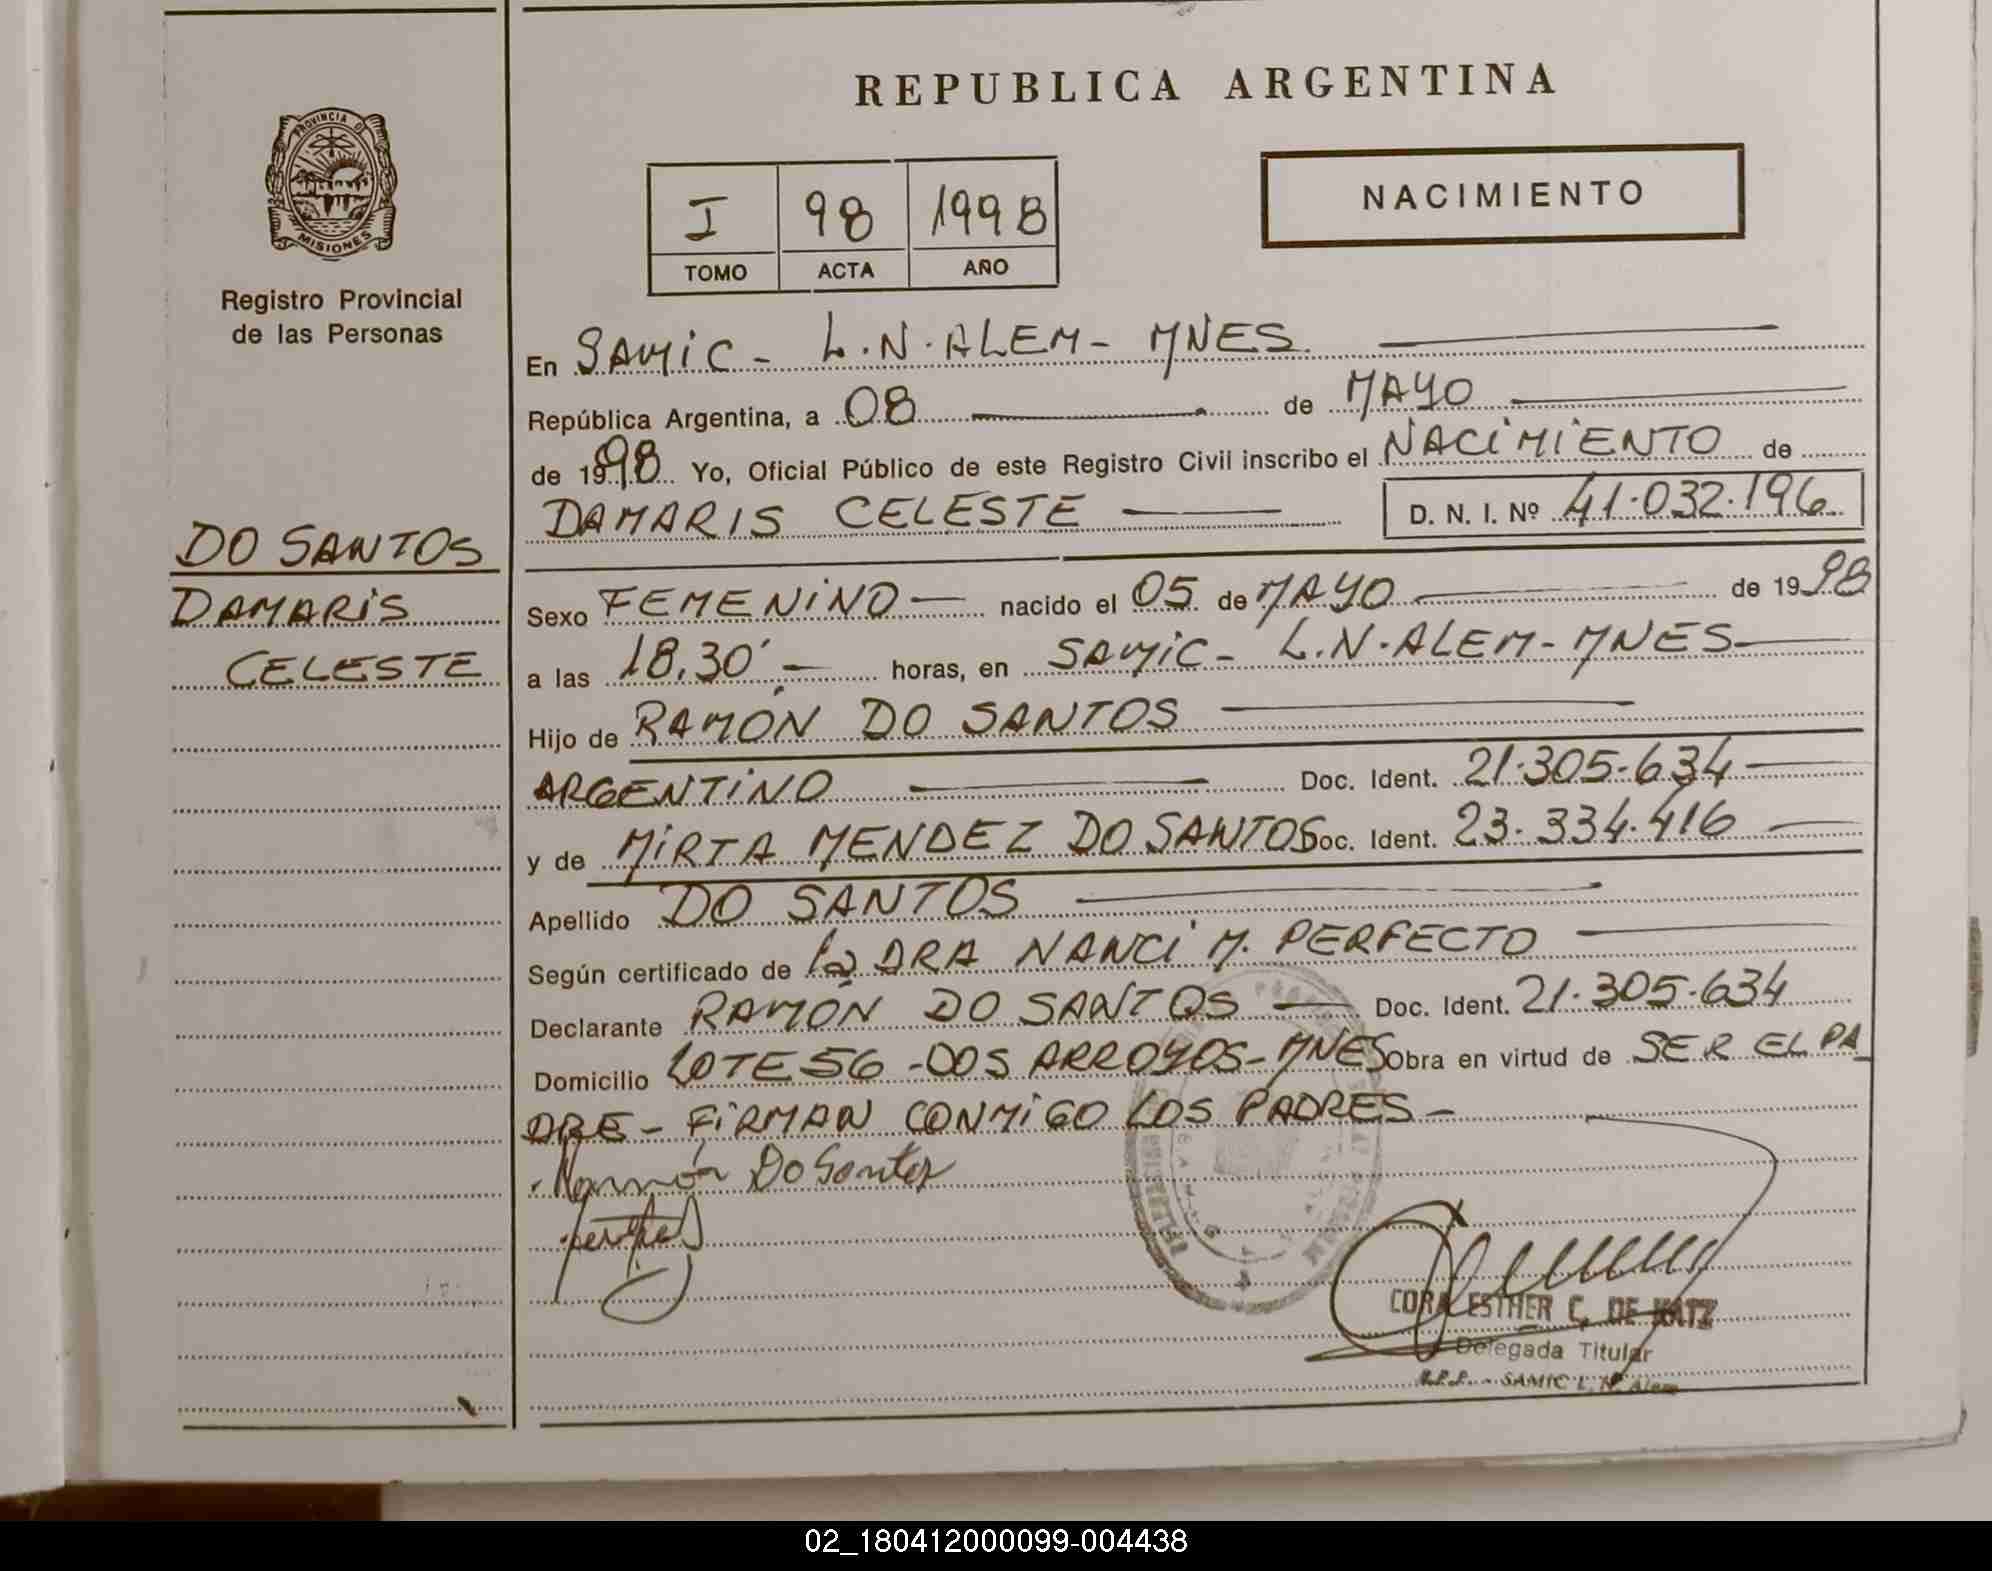 REPUBLICA ARGENTINA
PROVINCIA DE
MISIONES
Registro Provincial
de las Personas
I 98 1998
TOMO ACTA AÑO
NACIMIENTO
En SAMIC - L.N.ALEM - MNES.
República Argentina, a 08 de MAYO
de 1998 Yo, Oficial Público de este Registro Civil inscribo el NACIMIENTO de
DAMARIS CELESTE D. N. I. Nº 41.032.196
DO SANTOS
DAMARIS
CELESTE
Sexo FEMENINO nacido el 05 de MAYO de 1998
a las 18,30' horas, en SAMIC - L.N.ALEM - MNES
Hijo de RAMÓN DO SANTOS
ARGENTINO Doc. Ident. 21.305.634
y de MIRTA MENDEZ DO SANTOS Doc. Ident. 23.334.416
Apellido DO SANTOS
Según certificado de la DRA NANCI M. PERFECTO
Declarante RAMÓN DO SANTOS Doc. Ident. 21.305.634
Domicilio LOTE 56 - DOS ARROYOS - MNES Obra en virtud de SER EL PA
DRE - FIRMAN CONMIGO LOS PADRES -
Ramón Do Santos
CORA ESTHER C. DE KATZ
Delegada Titular
R.P.P. - SAMIC L. N. Alem
02_180412000099-004438